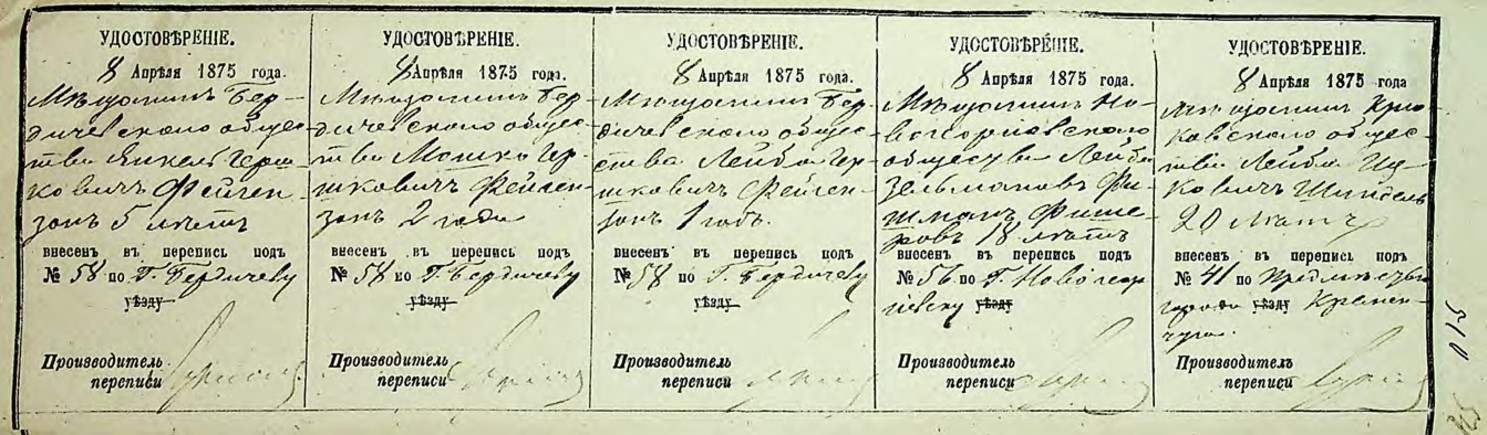 УДОСТОВѢРЕНІЕ.
8 Апрѣля 1875 года.
Мѣщанинъ Бер-
дичевскаго общес-
тва Янкель Герш-
ковичъ Фейген-
зонъ 5 лѣтъ
внесенъ въ перепись подъ
№ 58 по Г. Бердичеву
уѣзду
Производитель
переписи
УДОСТОВѢРЕНІЕ.
8 Апрѣля 1875 года.
Мѣщанинъ Бер-
дичевскаго общес-
тва Мошко Гер-
шковичъ Фейген-
зонъ 2 года
внесенъ въ перепись подъ
№ 58 по Г. Бердичеву
уѣзду
Производитель
переписи
УДОСТОВѢРЕНІЕ.
8 Апрѣля 1875 года.
Мѣщанинъ Бер-
дичевскаго общес-
ства Лейба Гер-
шковичъ Фейген-
зонъ 1 годъ.
внесенъ въ перепись подъ
№ 58 по Г. Бердичеву
уѣзду
Производитель
переписи
УДОСТОВѢРЕНІЕ.
8 Апрѣля 1875 года.
Мѣщанинъ Но-
вогеоргіевскаго
общества Лейба
Зельмановъ Фи-
шманъ Фише-
ровъ 18 лѣтъ
внесенъ въ перепись подъ
№ 56 по Г. Новогеор
гіевску уѣзду
Производитель
переписи
УДОСТОВѢРЕНІЕ.
8 Апрѣля 1875 года
Мѣщанинъ Крю-
ковскаго общес-
тва Лейба Иц-
ковичъ Шиндель
20 лѣтъ
внесенъ въ перепись подъ
№ 41 по Предмѣстью
города уѣзду Кремен-
чуга.
Производитель
переписи
510